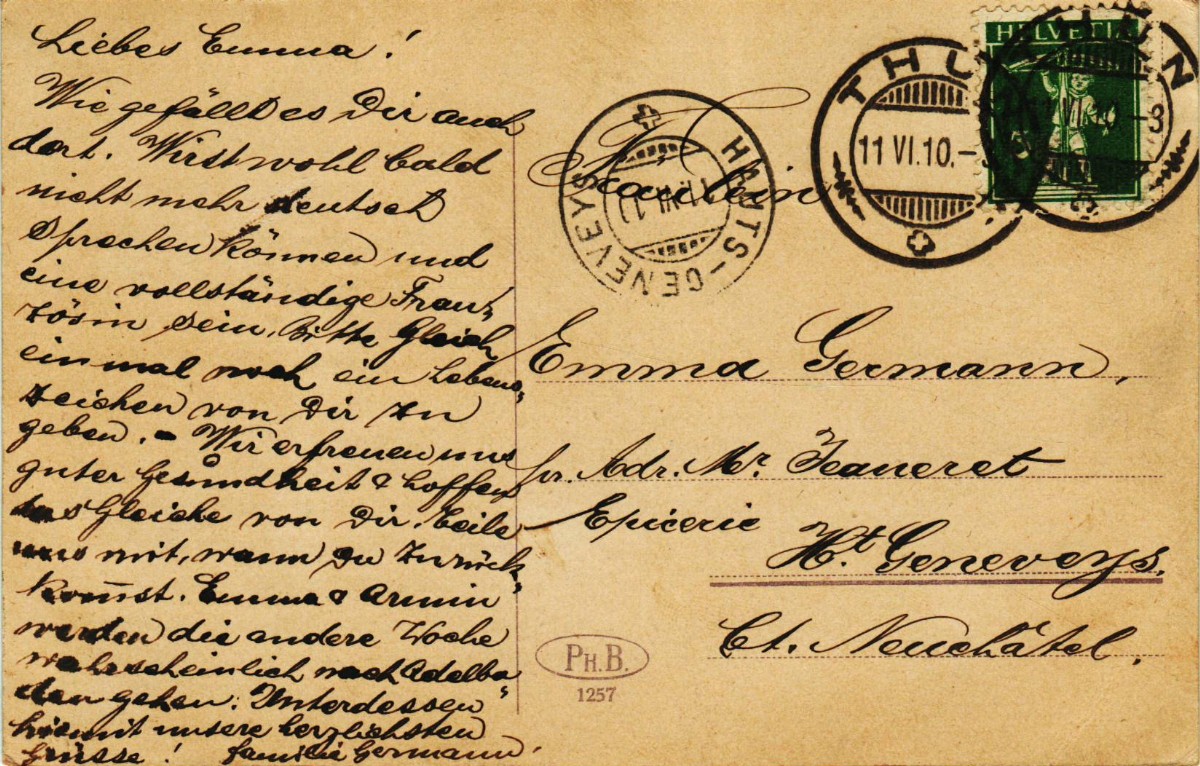 Liebes Emma!
Wie gefällt es Dir auch
dort. Wirst wohl bald
nicht mehr deutsch
sprechen können und
eine vollständige Fran-
zösin sein. Bitte Gleich
einmal noch ein Lebens-
zeichen von Dir zu
geben. - Wir erfreuen uns
guter Gesundheit & hoffen
das Gleiche von Dir. Teile
uns mit, wann Du zurück-
kom̅st. Emma & Armin
werden die andere Woche
wahrscheinlich nach Adelbo
den gehen. Unterdessen
hiemit unsere herzlichsten
Grüsse! Familie Germann.
HELVETIA
THUN
11 VI.10.-
THUN
VI.10 -8
HAUTS-GENEVEYS
VI.10
Fräulein
Emma Germann,
pr. Adr. Mr. Jeaneret
Epicerie
Ht. Geneveys.
Ct. Neuchâtel.
PH.B.
1257